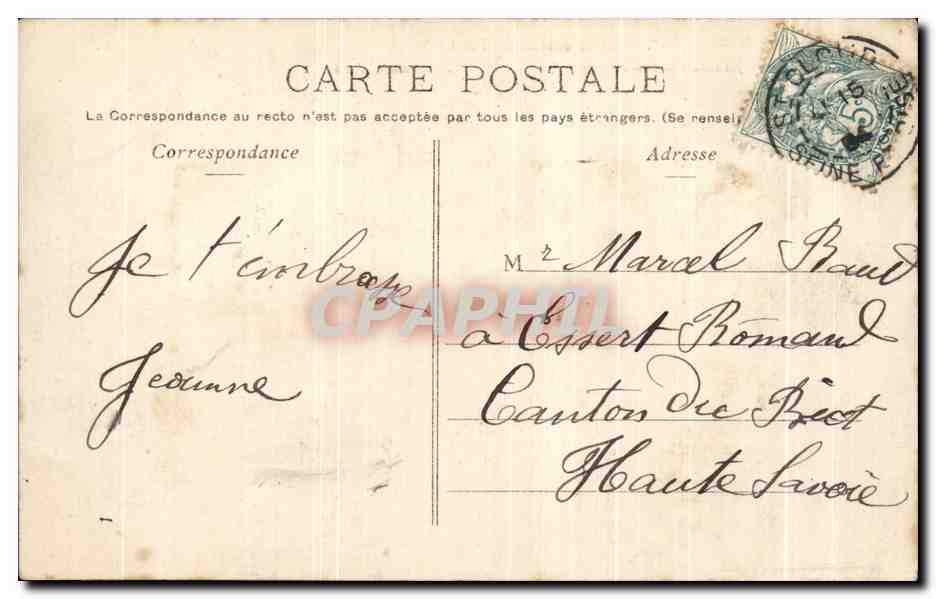 CARTE POSTALE
La Correspondance au recto n'est pas acceptée par tous les pays étrangers. (Se rensei
Correspondance
Adresse
Je t'embrasse
Jeanne
Mr Marcel Baud
à Essert Romand
Canton du Biot
Haute Savoie
ST CLOUD
15
SEINE
5
CPAPHIL